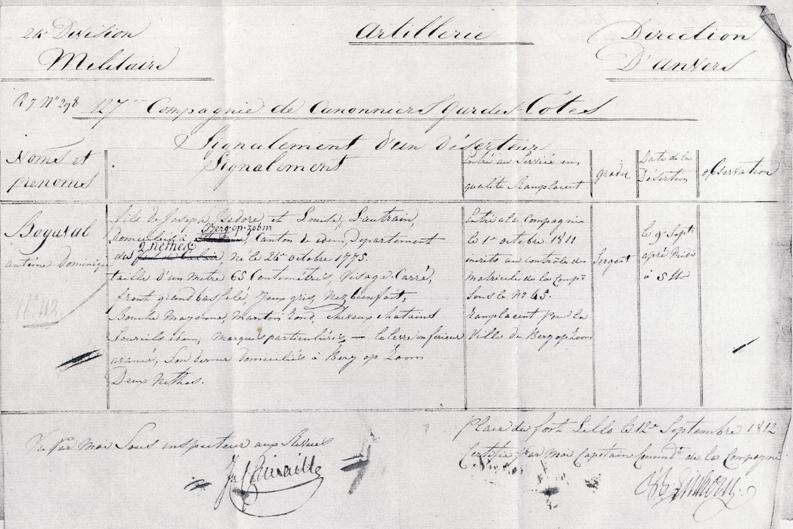 24e Division
Militaire
Artillerie
Direction
D'anvers
127me Compagnie de Canonniers Gardes Côtes
Signalement d'un Déserteur
Noms et
prenoms
Signalement
Entré au Service en
qualité Remplacent
grade
Date de la
Désertion
observation
Bogaral
antoine Dominique
fils de Joseph, Isidore, et Louise, Lautrain,
Berg-op-zoom
Domicilié à Canton de Département
2 nethes
né le 25 octobre 1775
taille d'un metre 65 Centimetres, Visage Carré,
front grand Yeux gris, Nez bienfait,
Bouche Moyenne, Menton rond, Cheveux chatains
Sourcils idem, Marques particulières — la levre inferieure
son dernier domicilié à Berg op Zoom
Deux Nethes.
Entré a la Compagnie
le 1er octobre 1811
inscrit au controle de
Matricule de la Compe
Sous le No 45.
remplacent pour la
Ville de Berg op Zoom
Sergent
le 9 Sept
après Midi
à 5 H
Vu Par Moi Sous inspecteur aux Revues
Place du fort Lillo le 12e Septembre 1812
Certifié par Moi Capitaine Commdt de la Compagnie